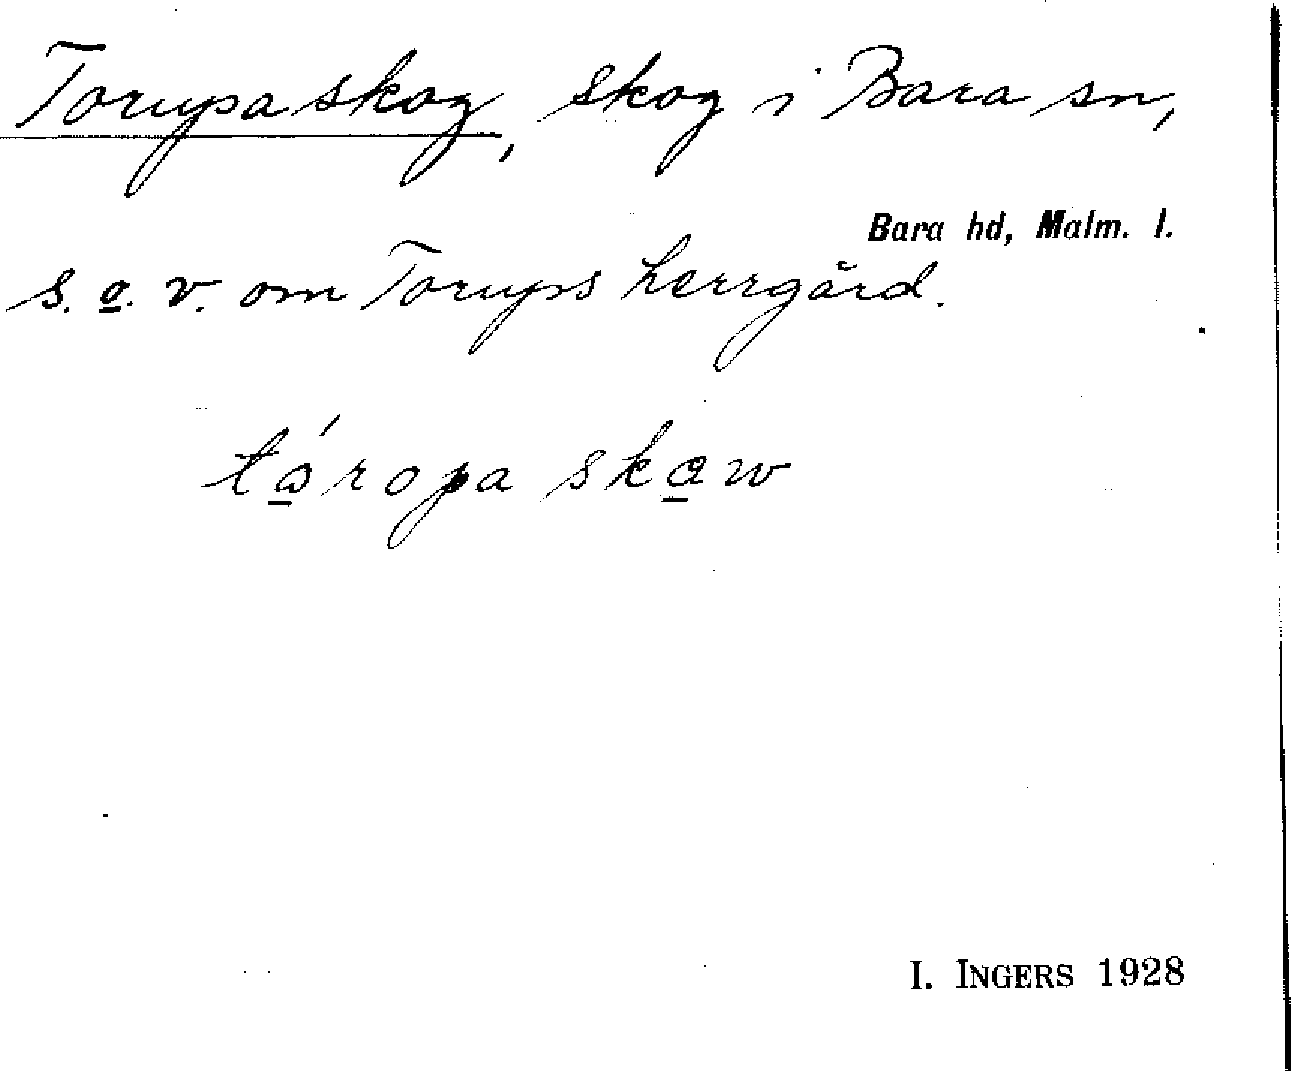 Torupa skog, skog i Bara sn,
Bara hd, Malm. l.
s. o. v. om Torups herrgård.
tá̱ropa ska̱w
I. INGERS 1928